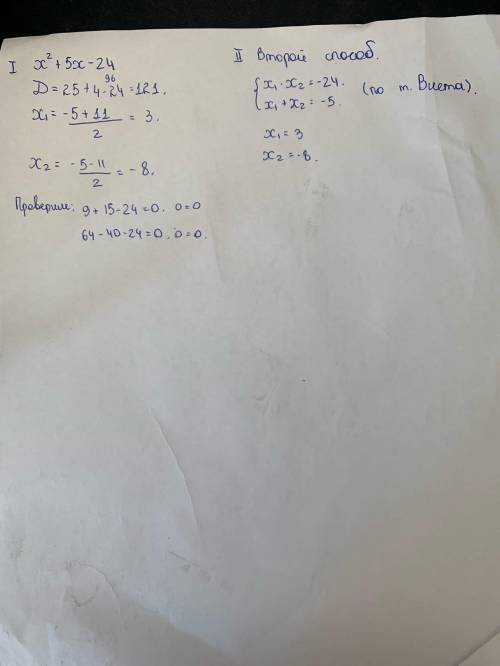 I x² + 5x - 24
D = 25 + 4·24 = 121.
96
x₁ = -5 + 11 / 2 = 3.
x₂ = -5 - 11 / 2 = -8.
Проверим: 9 + 15 - 24 = 0. 0 = 0
64 - 40 - 24 = 0. 0 = 0.
II Второй способ.
{ x₁ · x₂ = -24.
x₁ + x₂ = -5. (по т. Виета).
x₁ = 3
x₂ = -8.